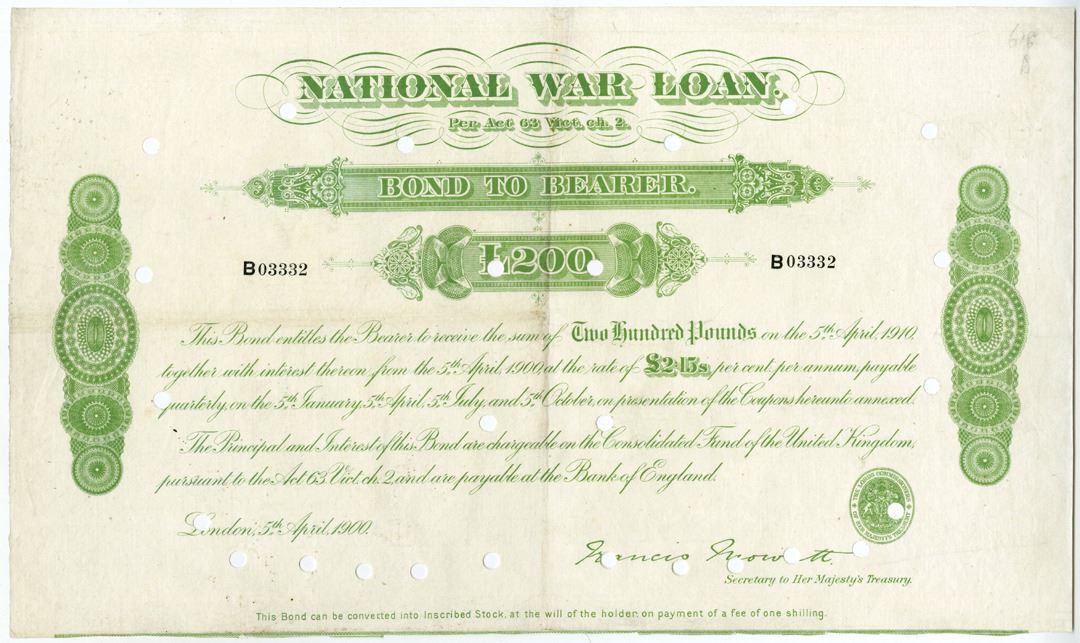 NATIONAL WAR LOAN.
Per Act 63 Vict. ch. 2.
BOND TO BEARER.
£200
B03332
B03332
This Bond entitles the Bearer to receive the sum of Two Hundred Pounds on the 5th April, 1910,
together with interest thereon from the 5th April, 1900, at the rate of £2·15s, per cent. per annum, payable
quarterly, on the 5th January, 5th April, 5th July, and 5th October, on presentation of the Coupons hereunto annexed.
The Principal and Interest of this Bond are chargeable on the Consolidated Fund of the United Kingdom,
pursuant to the Act 63. Vict. ch. 2. and are payable at the Bank of England.
London, 5th April, 1900.
THE LORDS COMMISSIONERS OF HER MAJESTY'S TREASURY
Francis Mowatt
Secretary to Her Majesty's Treasury.
This Bond can be converted into Inscribed Stock, at the will of the holder on payment of a fee of one shilling.